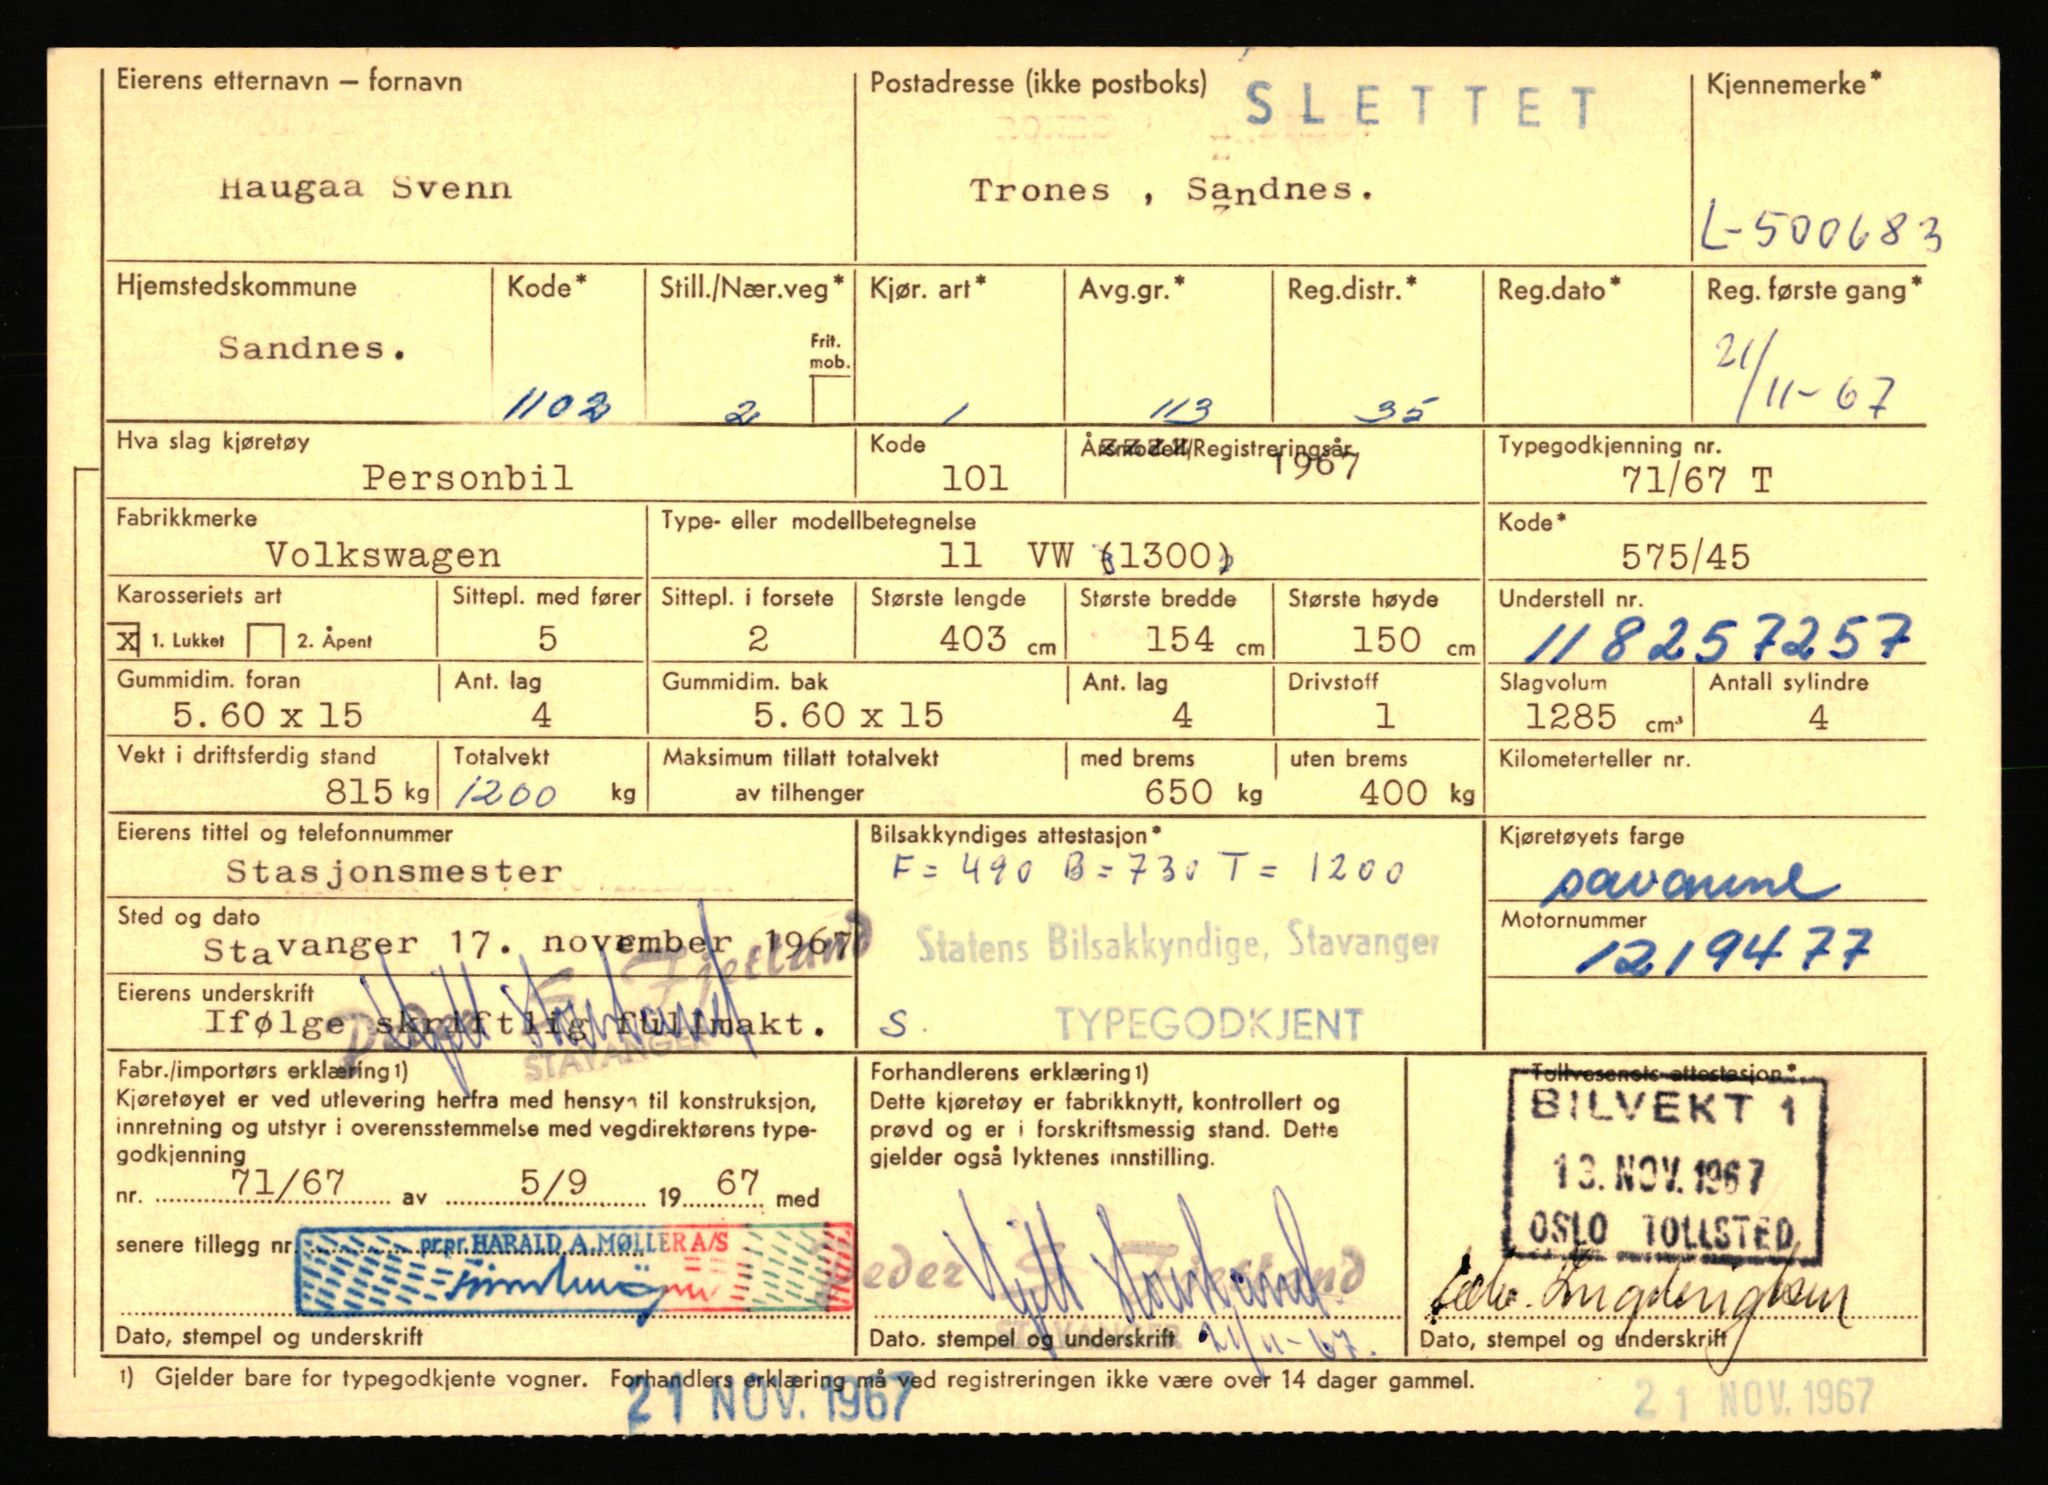 Eierens etternavn – fornavn
Haugaa Svenn
Postadresse (ikke postboks)
SLETTET
Trones , Sandnes.
Kjennemerke*
L-500683
Hjemstedskommune
Sandnes.
Kode*
1102
Still./Nær.veg*
Frit.
mob.
2
Kjør. art*
1
Avg.gr.*
113
Reg.distr.*
35
Reg.dato*
Reg. første gang*
21/11-67
Hva slag kjøretøy
Personbil
Kode
101
Årsmodell/Registreringsår
1967
Typegodkjenning nr.
71/67 T
Fabrikkmerke
Volkswagen
Type- eller modellbetegnelse
11 VW (1300)
Kode*
575/45
Karosseriets art
X 1. Lukket 2. Åpent
Sittepl. med fører
5
Sittepl. i forsete
2
Største lengde
403 cm
Største bredde
154 cm
Største høyde
150 cm
Understell nr.
118257257
Gummidim. foran
5.60 x 15
Ant. lag
4
Gummidim. bak
5.60 x 15
Ant. lag
4
Drivstoff
1
Slagvolum
1285 cm³
Antall sylindre
4
Vekt i driftsferdig stand
815 kg
Totalvekt
1200 kg
Maksimum tillatt totalvekt
av tilhenger
med brems
650 kg
uten brems
400 kg
Kilometerteller nr.
Eierens tittel og telefonnummer
Stasjonsmester
Bilsakkyndiges attestasjon*
F = 490 B = 730 T = 1200
Statens Bilsakkyndige, Stavanger
S. TYPEGODKJENT
Kjøretøyets farge
savanne
Motornummer
1219477
Sted og dato
Stavanger 17. november 1967
Eierens underskrift
Ifølge skriftlig fullmakt.
Peder S. Fjetland
STAVANGER
Fabr./importørs erklæring1)
Kjøretøyet er ved utlevering herfra med hensyn til konstruksjon,
innretning og utstyr i overensstemmelse med vegdirektørens type-
godkjenning
nr. 71/67 av 5/9 1967 med
senere tillegg nr.
pr.pr. HARALD A. MØLLER A/S
Dato, stempel og underskrift
Forhandlerens erklæring1)
Dette kjøretøy er fabrikknytt, kontrollert og
prøvd og er i forskriftsmessig stand. Dette
gjelder også lyktenes innstilling.
Peder S. Fjetland
STAVANGER
21/11-67.
Dato. stempel og underskrift
Tollvesenets attestasjon*
BILVEKT 1
13. NOV. 1967
OSLO TOLLSTED
Dato, stempel og underskrift
1) Gjelder bare for typegodkjente vogner. Forhandlers erklæring må ved registreringen ikke være over 14 dager gammel.
21 NOV. 1967
21 NOV. 1967